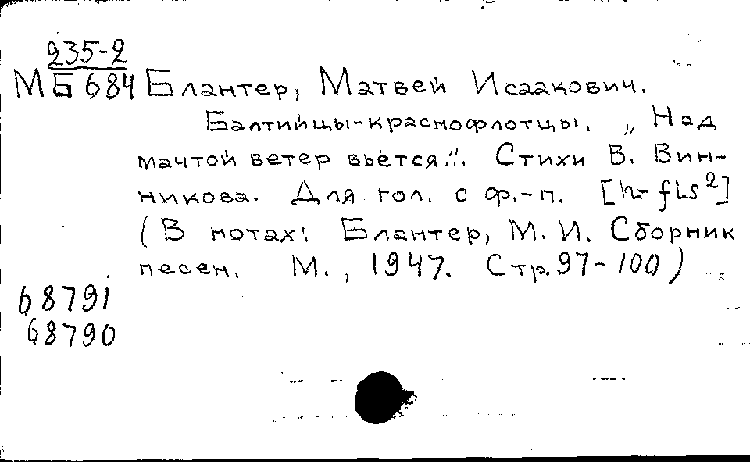 235-2
МБ684 Блантер, Матвей Исаакович.
Балтийцы-краснофлотцы. „Над
мачтой ветер вьётся..". Стихи В. Вин-
никова. Для гол. с ф.-п. [h-fis²]
(В нотах: Блантер, М. И. Сборник
песен. М., 1947. Стр. 97-100)
68791
68790